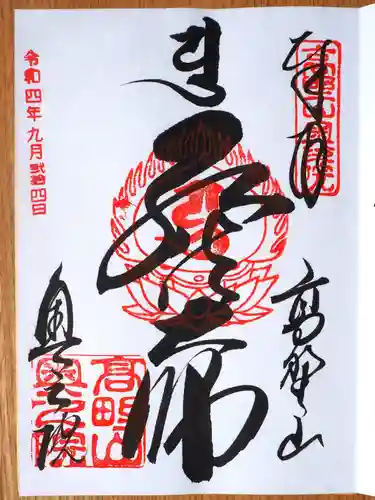 奉拝
高野山奥之院
高野山
弘法大師
令和四年九月弐拾四日
奥之院
高野山
奥之院